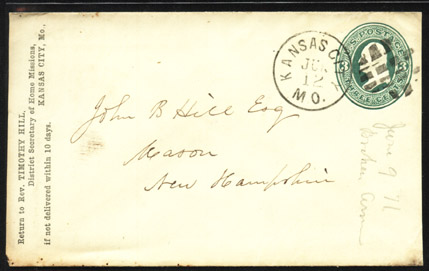 Return to Rev. TIMOTHY HILL,
District Secretary of Home Missions,
KANSAS CITY, Mo.
if not delivered within 10 days.
KANSAS CITY
JUN
12
MO.
U.S. POSTAGE
3 3
THREE CENTS
John B Hill Esq
Mason
New Hampshire
June 9
Broken Arm